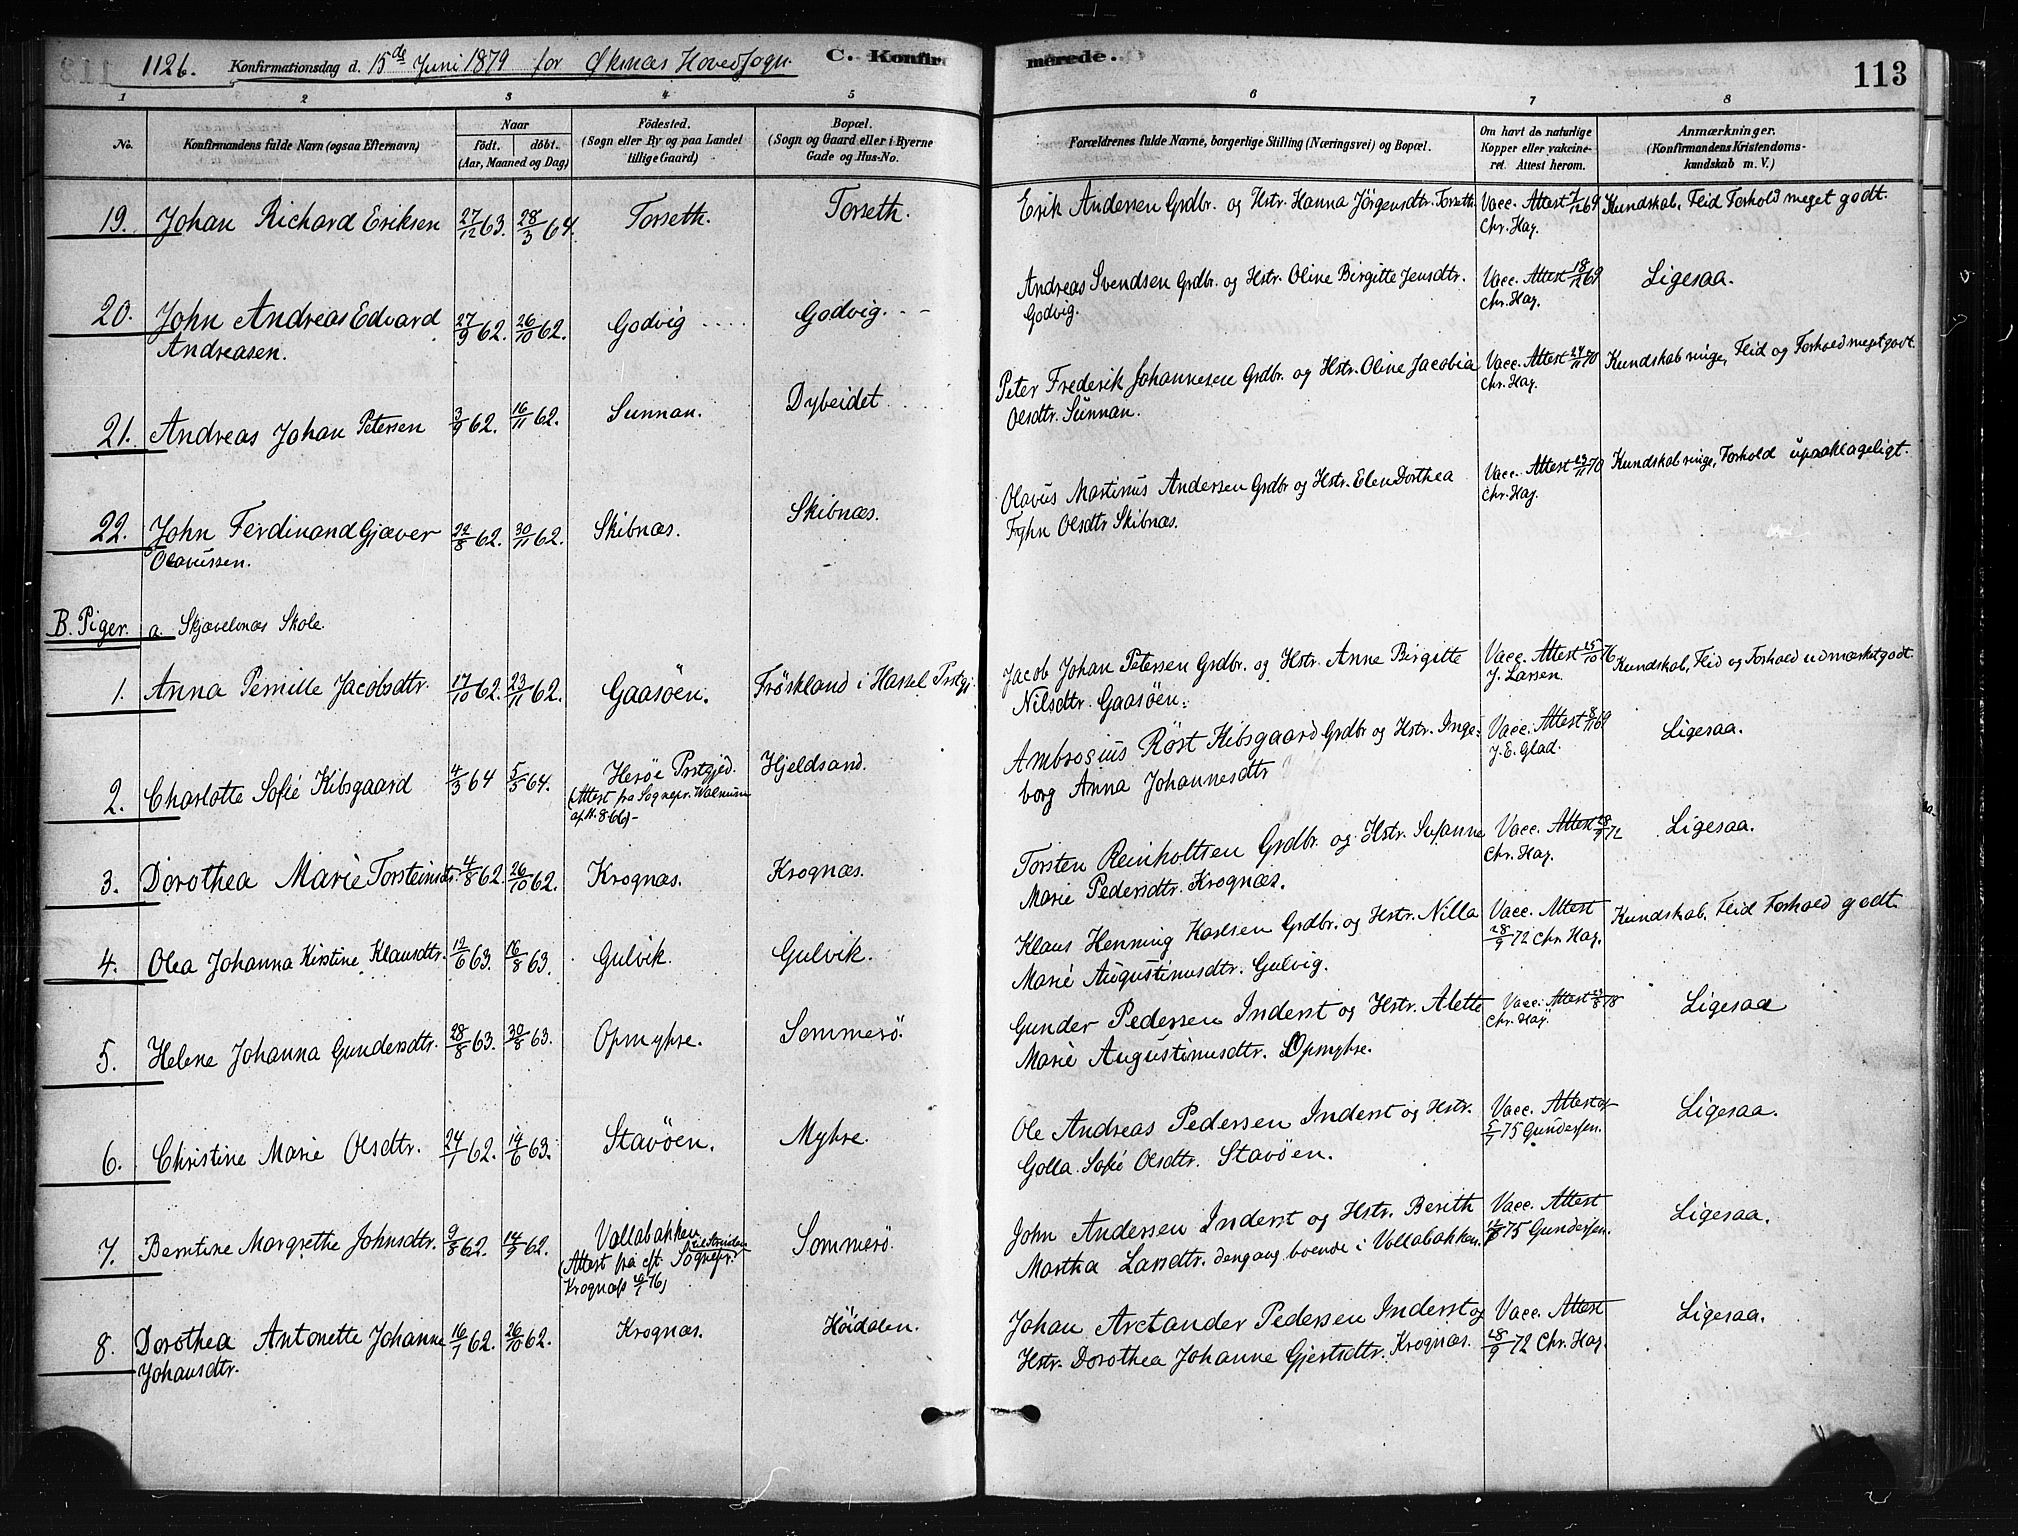 1126. Konfirmationsdag d. 15de Juni 1879 for Øksnæs Hovedsogn. C. Konfirmerede. 113
1 2 3 4 5 6 7 8
No. Konfirmandens fulde Navn (ogsaa Efternavn) Naar födt. döbt. (Aar, Maaned og Dag) Födested. (Sogn eller By og paa Landet tillige Gaard) Bopæl. (Sogn og Gaard eller i Byerne Gade og Hus-No. Forældrenes fulde Navne, borgerlige Stilling (Næringsvei) og Bopæl. Om havt de naturlige Kopper eller vakcineret. Attest herom. Anmærkninger. (Konfirmandens Kristendomskundskab m. V.)
19. Johan Richard Eriksen 27/12 63. 28/3 64. Torseth. Torseth. Erik Andersen Grdbr. og Hstr. Hanna Jörgensdtr. Torseth. Vacc. Attest 7/12 69 Chr. Hag. Kundskab, Flid Forhold meget godt.
20. John Andreas Edvard Andreasen. 27/9 62. 26/10 62. Godvig .... Godvig. Andreas Svendsen Grdbr. og Hstr. Oline Birgitte Jensdtr. Godvig. Vacc. Attest 18/12 69 Chr. Hag. Ligesaa.
21. Andreas Johan Petersen 3/9 62. 16/11 62. Sunnan. Dybeidet Peter Frederik Johannesen Grdbr. og Hstr. Oline Jacobia Olsdtr. Sunnan. Vacc. Attest 24/11 70 Chr. Hag. Kundskab ringe, Flid og Forhold meget godt.
22. John Ferdinand Gjæver Olavussen. 22/8 62. 30/11 62. Skibnæs. Skibnæs. Olavus Martinus Andersen Grdbr og Hstr. Elen Dorthea Fyhn Olsdtr Skibnæs. Vacc. Attest 23/11 70 Chr. Hag. Kundskab ringe, Forhold upaaklageligt.
B. Piger. a. Skjævelnæs Skole.
1. Anna Pernille Jacobsdtr. 17/10 62. 23/11 62. Gaasöen. Fröskland i Hassel Prstgj. Jacob Johan Petersen Grdbr. og Hstr. Anne Birgitte Nilsdtr. Gaasöen. Vacc. Attest 25/10 76 J. Larsen. Kundskab, Flid og Forhold udmærket godt.
2. Charlotte Sofie Kibsgaard 4/3 64 5/5 64. Heröe Prstgjed. (Attest fra Sognepr. Hjeldsand. Ambrosius Röst Kibsgaard Grdbr og Hstr. Ingeborg Anna Johannesdtr Vacc. Attest 8/11 69 J. E. Glad. Ligesaa.
3. Dorothea Marie Torsteinsdtr. 4/8 62. 26/10 62. Krognæs. Krognæs. Torsten Reinholtsen Grdbr. og Hstr. Susanne Marie Pedersdtr. Krognæs. Vacc. Attest 28/9 72 Chr. Hag. Ligesaa.
4. Olea Johanna Kirstine Klausdtr. 12/6 63. 16/8 63. Gulvik. Gulvik. Klaus Henning Karlsen Grdbr. og Hstr. Nilla Marie Augustinusdtr. Gulvig. Vacc. Attest 28/9 72 Chr. Hag. Kundskab, Flid Forhold godt.
5. Helene Johanna Gundersdtr. 28/8 63. 30/8 63. Opmyhre. Sommerö. Gunder Pedersen Inderst og Hstr. Alette Marie Augustinusdtr. Opmyhre. Vacc. Attest 23/8 78 Chr. Hag. Ligesaa
6. Christine Marie Olsdtr. 24/7 62. 14/6 63. Stavöen. Myhre. Ole Andreas Pedersen Inderst og Hstr. Golla Sofie Olsdtr. Stavöen. Vacc. Attest af 5/7 75 Gundersen. Ligesaa.
7. Berntine Margrethe Johnsdtr. 9/8 62. 14/9 62. Vollabakken (Attest fra cst. Sognepr. Krognæss Sommerö. John Andersen Inderst og Hstr. Berith Martha Larsdtr. dengang boende i Vollabakken. Vacc. Attest 75 Gundersen. Ligesaa.
8. Dorothea Antonette Johanne Johansdtr. 16/7 62. 26/10 62. Krognæs. Höidalen. Johan Arctander Pedersen Inderst og Hstr. Dorothea Johanne Gjertsdtr. Krognæs. Vacc. Attest 28/9 72 Chr. Hag. Ligesaa.